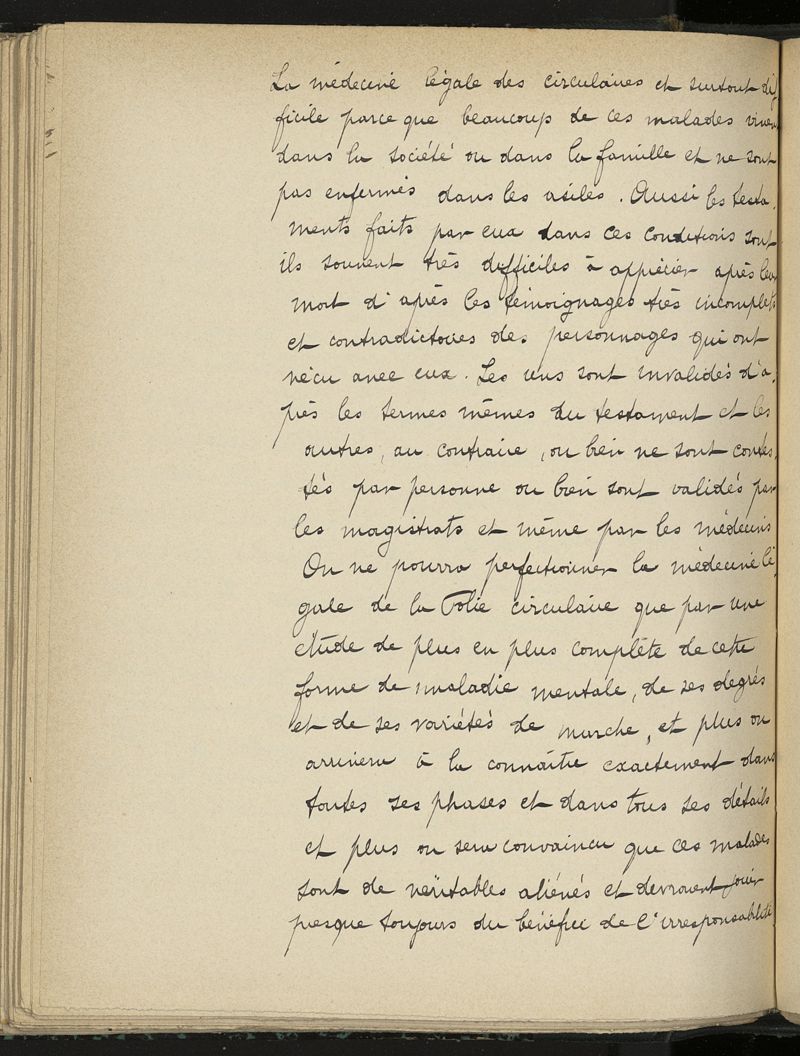 La médecine légale des circulaires et surtout dif
ficile parce que beaucoup de ces malades vivent
dans la société ou dans la famille et ne sont
pas enfermés dans les asiles. Aussi les testa.
ments faits par eux dans ces conditions sont
ils souvent très difficiles à apprécier après leur
mort d'après les témoignages très incomplets
et contradictoires des personnages qui ont
vécu avec eux. Les uns sont invalidés d'a.
près les termes mêmes du testament et les
autres, au contraire, ou bien ne sont contes.
tés par personne ou bien sont validés par
les magistrats et même par les médecins
On ne pourra perfectionner la médecine lé.
gale de la Folie circulaire que par une
étude de plus en plus complète de cette
forme de maladie mentale, de ses degrés
et de ses variétés de marche, et plus on
arrivera à la connaître exactement dans
toutes ses phases et dans tous ses détails
et plus on sera convaincu que ces malades
sont de véritables aliénés et devraient jouir
presque toujours du bénéfice de l'irresponsabilité